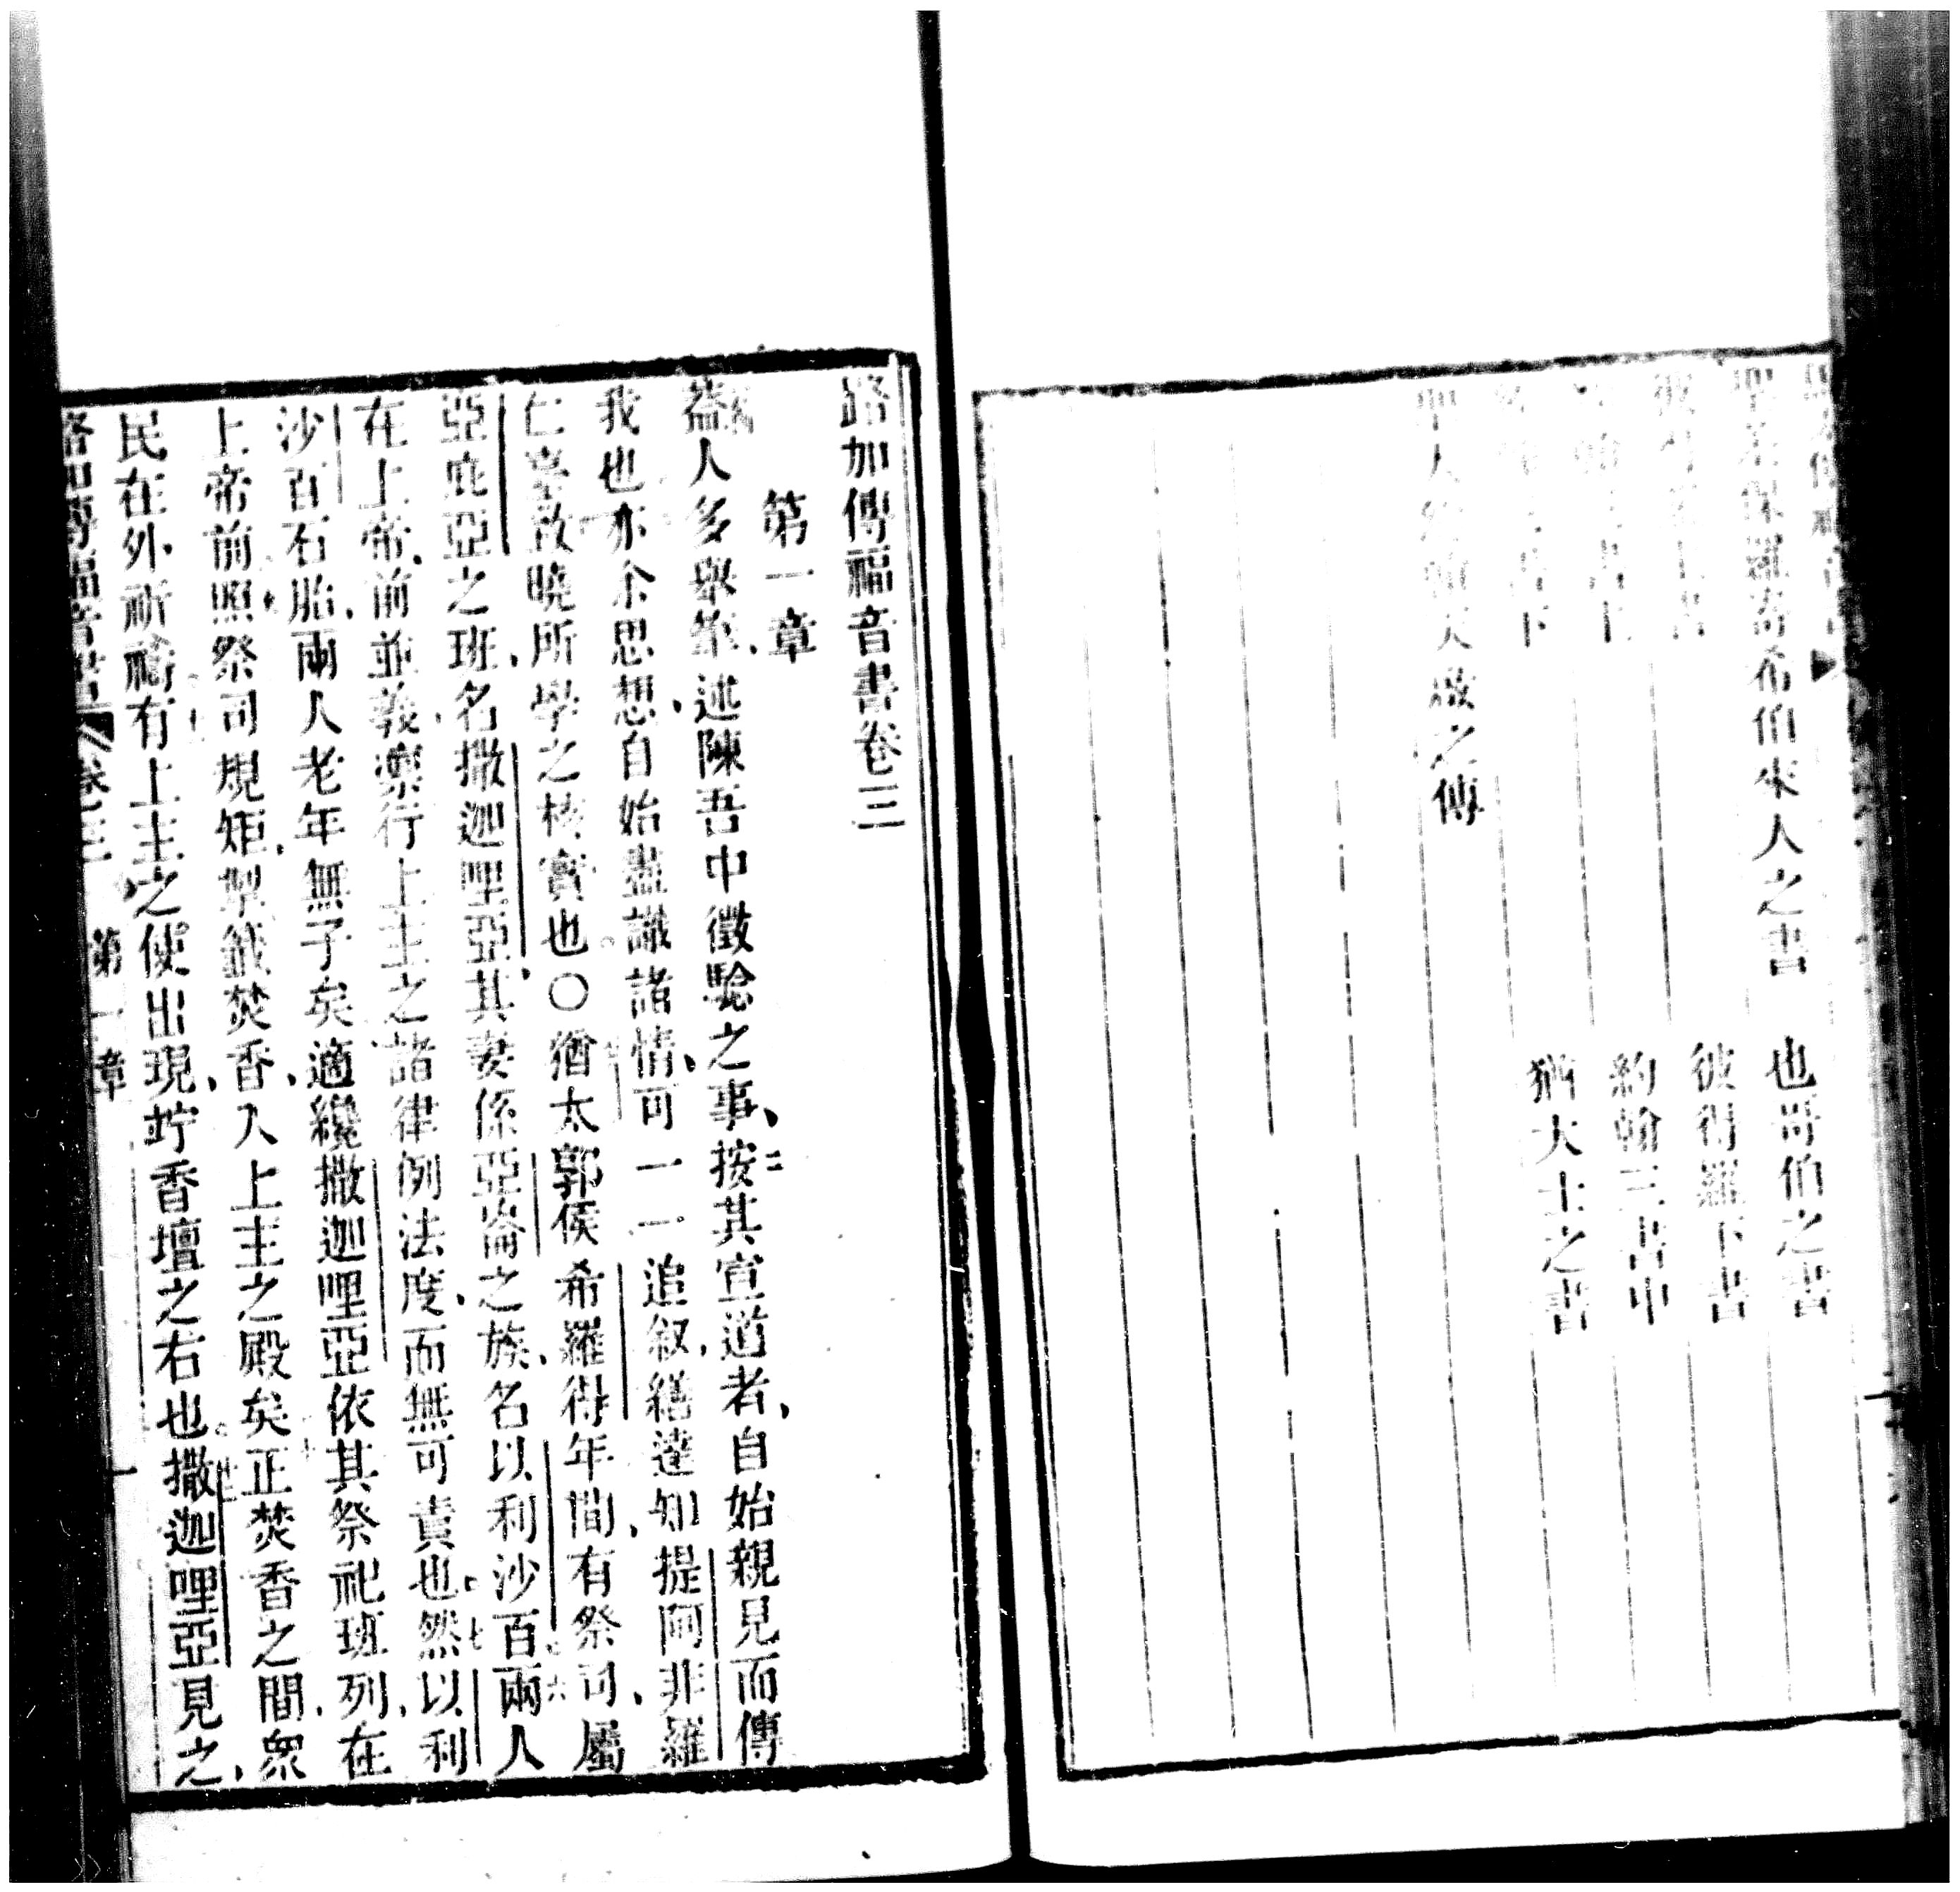 聖差保羅寄希伯來人之書　也哥伯之書
彼得羅上書　彼得羅下書
約翰上書　約翰三書中
書下　猶大士之書
聖人約翰天啟之傳
路加傳福音書卷三
第一章
蓋人多舉筆、述陳吾中徵驗之事、二按其宣道者、自始親見而傳
我也亦余思想、自始盡識諸情、可一一追叙、繕達知提阿非羅
仁臺致曉所學之核實也〇猶太郭侯希羅得年間、有祭司、屬
亞庇亞之班、名撒迦哩亞、其妻係亞倫之族、名以利沙百六兩人
在上帝、前並義、稟行上主之諸律例法度、而無可責也七然以利
沙百石胎、兩人老年無子矣、適纔撒迦哩亞依其祭祀班列、在
上帝前照祭司規矩、掣籤焚香、入上主之殿矣正焚香之間、眾
民在外祈禱有上主之使出現、竚香壇之右也撒迦哩亞見之、
路加傳福音書　卷三　第一章　一